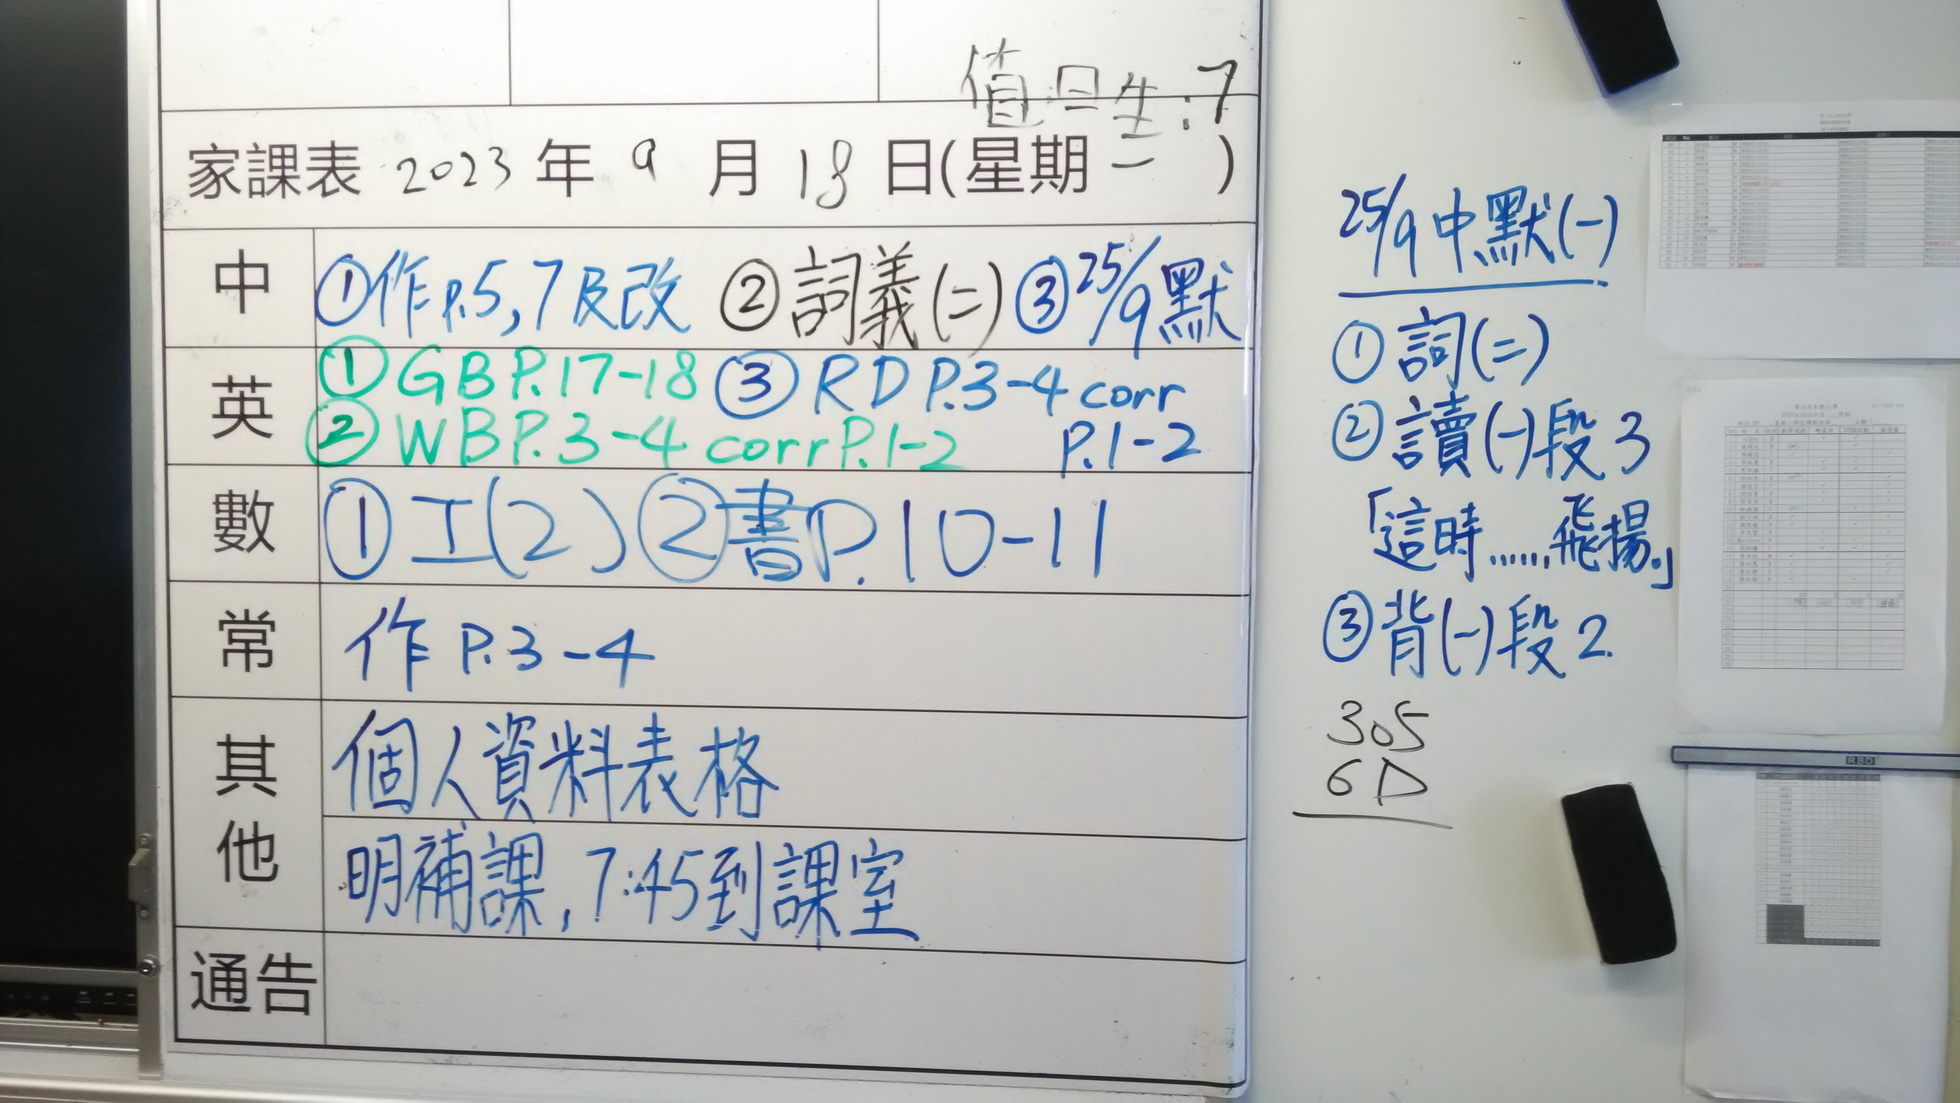 值日生:7
家課表 2023 年 9 月 18 日(星期 一 )
中 ①作p.5,7及改 ②詞義(二) ③25/9默
英 ① GB P.17-18 ③ RD P.3-4 corr
② WB P.3-4 corr P.1-2 P.1-2
數 ①工(2) ②書P.10-11
常 作 P.3-4
其他 個人資料表格
明補課,7:45到課室
通告
25/9中默(一)
①詞(二)
②讀(一)段3
「這時......飛揚。」
③背(一)段2.
305
6D
RBD